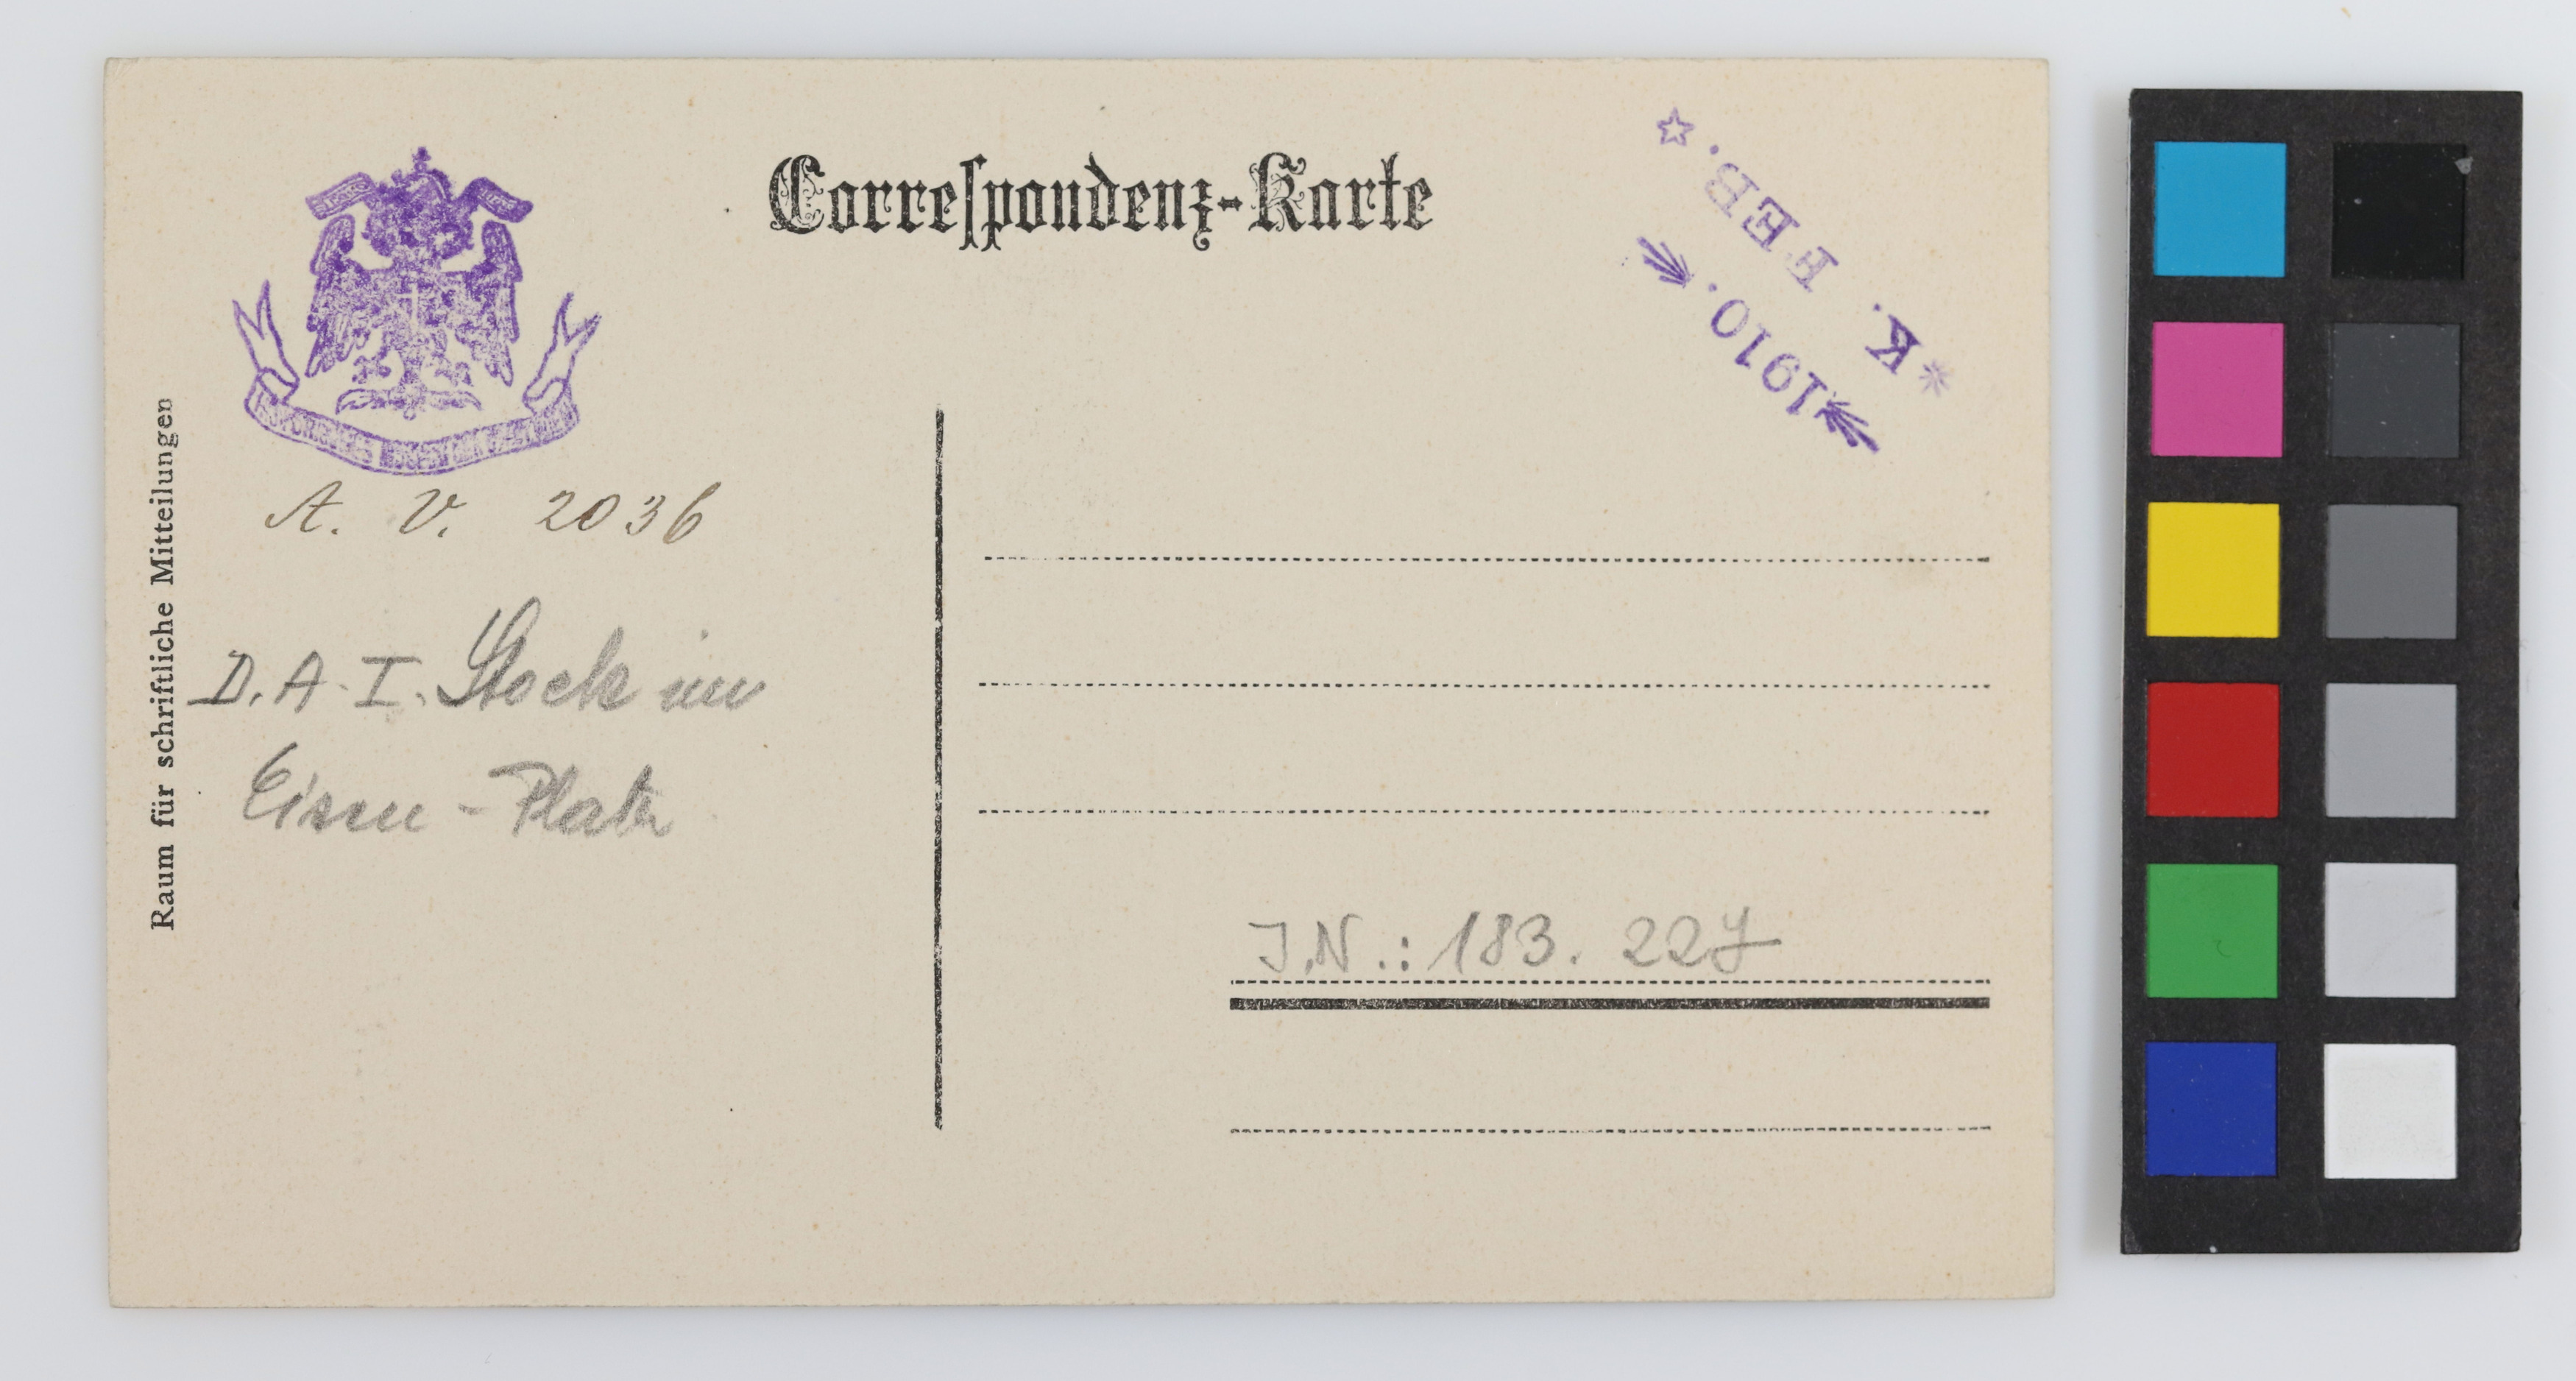 Correspondenz-Karte
K. FEB.
1910.
A. V. 2036
D. A. I. Stock im
Eisen - Platz
Raum für schriftliche Mitteilungen
J.N.: 183. 227